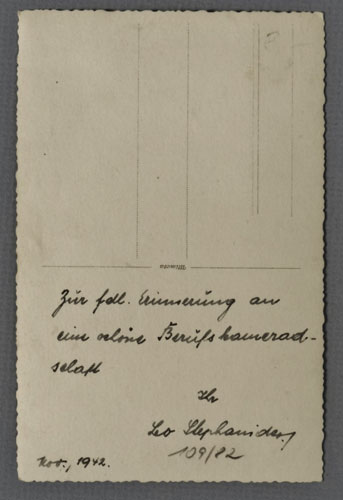 Zur fdl. Erinnerung an
eine schöne Berufskamerad-
schaft
Ihr
Leo
109/82
Nov., 1942.